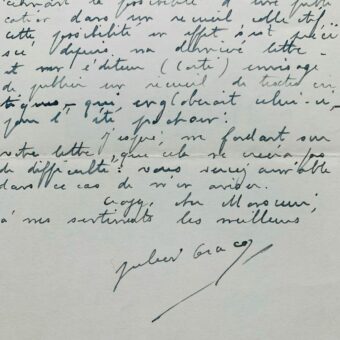 la possibilité d'une publi
cation dans un recueil collectif.
cette possibilité en effet s'est préci
sée depuis ma dernière lettre
et mon éditeur (Corti) envisage
de publier un recueil de textes cri
tiques, qui engloberait celui-ci,
pour l'été prochain.
J'espère, me fondant sur
votre lettre, que cela ne créera pas
de difficulté : vous seriez aimable
dans ce cas de m'en aviser.
Croyez, cher Monsieur,
à mes sentiments les meilleurs
Julien Gracq